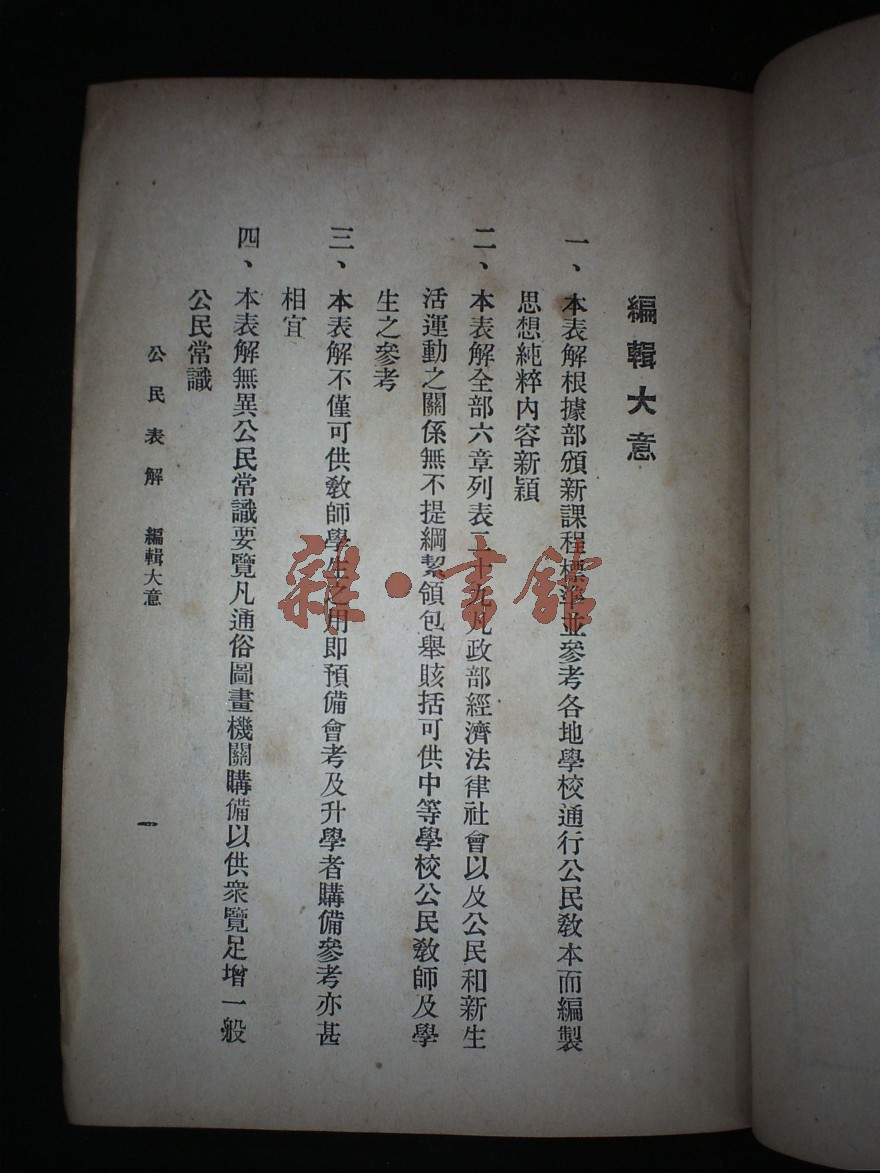 編輯大意
一、本表解根據部頒新課程標準並參考各地學校通行公民教本而編製
思想純粹內容新穎
二、本表解全部六章列表二十九凡政部經濟法律社會以及公民和新生
活運動之關係無不提綱絜領包舉賅括可供中等學校公民教師及學
生之參考
三、本表解不僅可供教師學生之用即預備會考及升學者購備參考亦甚
相宜
四、本表解無異公民常識要覽凡通俗圖畫機關購備以供衆覽足增一般
公民常識
公民表解 編輯大意 一
雜·書館